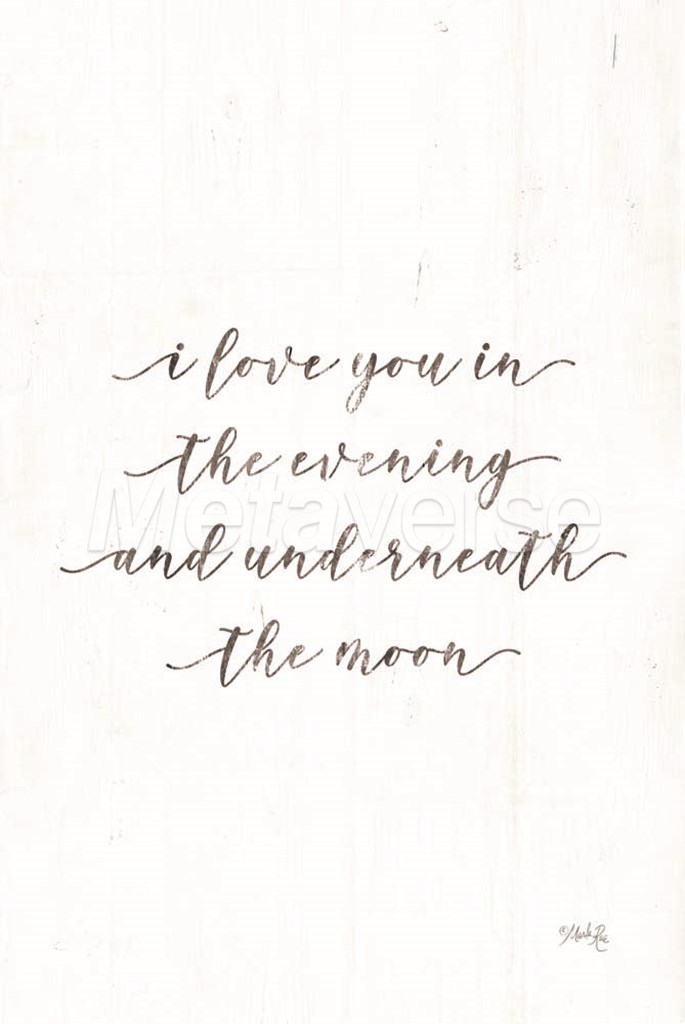 i love you in
the evening
Metaverse
and underneath
the moon
© Marla Rae